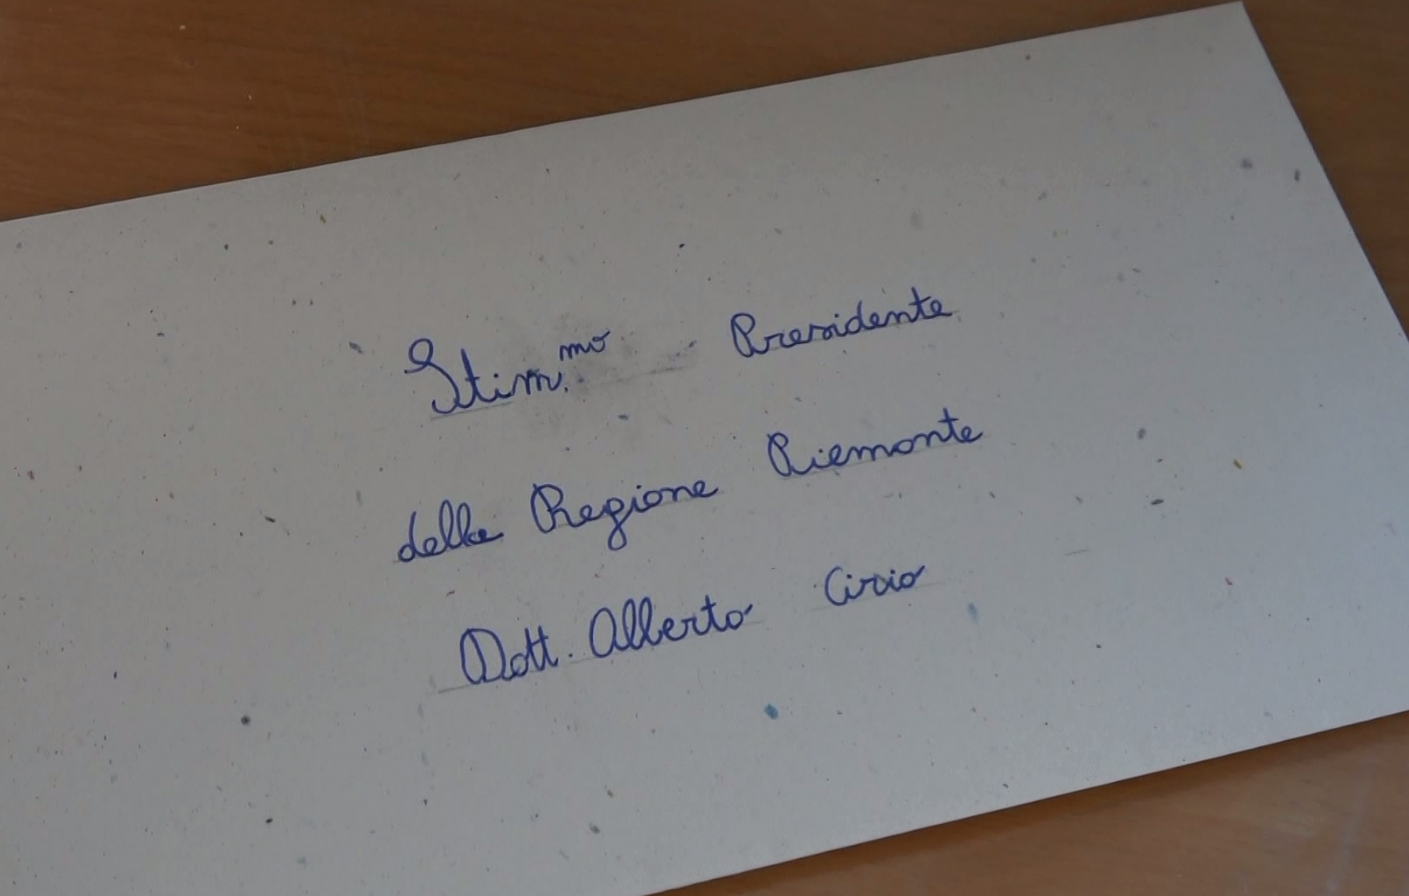 Stim.mo Presidente
della Regione Piemonte
Dott. Alberto Cirio